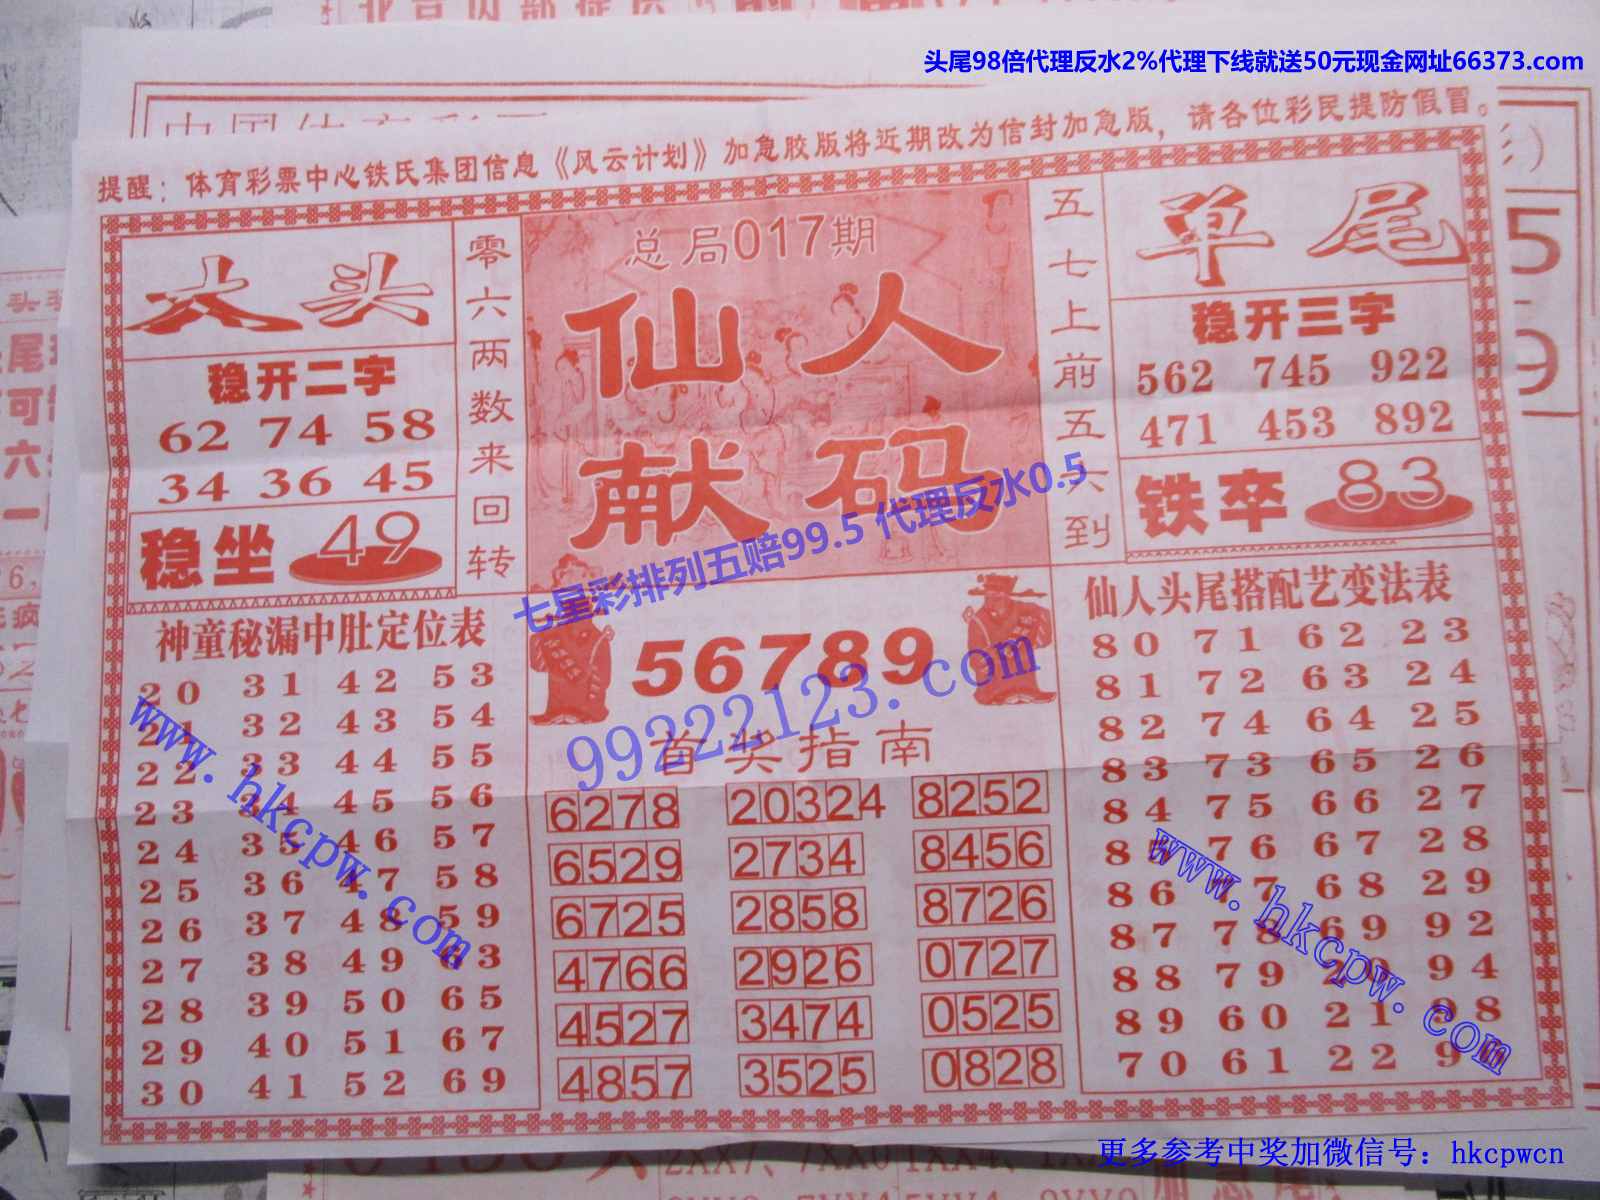 头尾98倍代理反水2%代理下线就送50元现金网址66373.com
提醒：体育彩票中心铁氏集团信息《风云计划》加急胶版将近期改为信封加急版，请各位彩民提防假冒。
大头
稳开二字
62 74 58
34 36 45
稳坐 49
零六两数来回转
总局017期
仙人
献码
五七上前五六到
单尾
稳开三字
562 745 922
471 453 892
铁卒 83
七星彩排列五赔99.5 代理反水0.5
神童秘漏中肚定位表
20 31 42 53
21 32 43 54
22 33 44 55
23 34 45 56
24 35 46 57
25 36 47 58
26 37 48 59
27 38 49 63
28 39 50 65
29 40 51 67
30 41 52 69
www.hkcpw.com
56789
99222123.com
首奖指南
6278 20324 8252
6529 2734 8456
6725 2858 8726
4766 2926 0727
4527 3474 0525
4857 3525 0828
仙人头尾搭配艺变法表
80 71 62 23
81 72 63 24
82 74 64 25
83 73 65 26
84 75 66 27
85 76 67 28
86 77 68 29
87 78 69 92
88 79 20 94
89 60 21 98
70 61 22
www.hkcpw.com
更多参考中奖加微信号：hkcpwcn